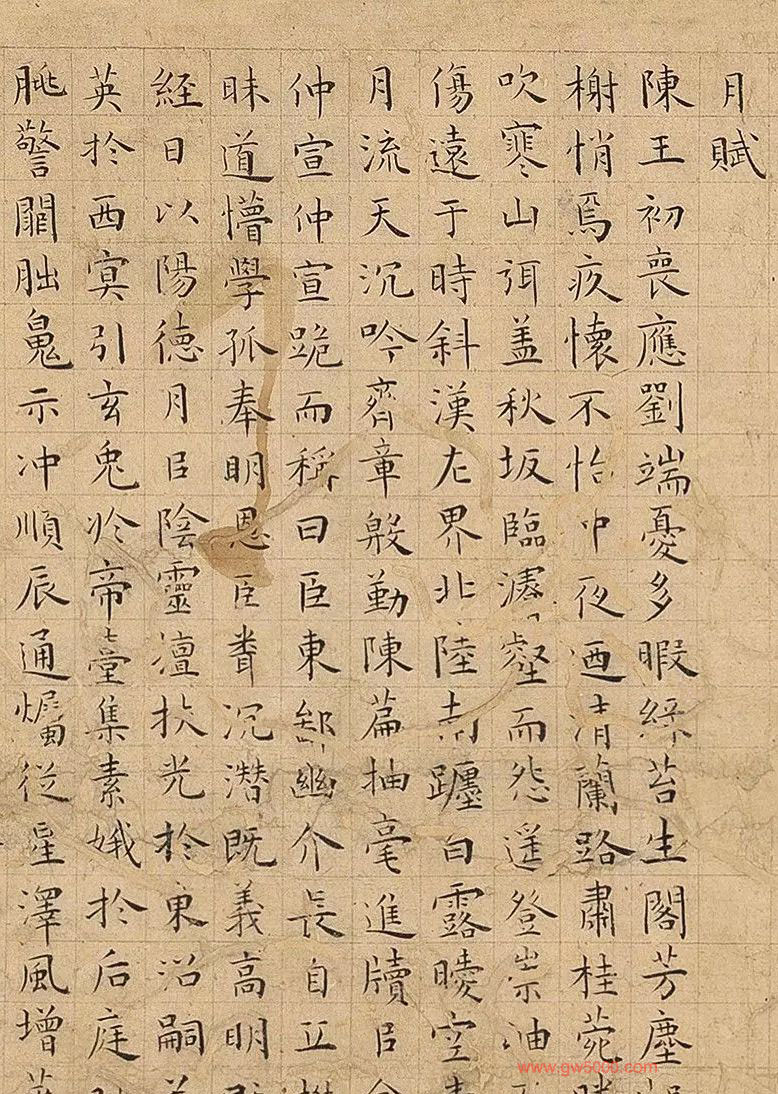 月賦
陳王初喪應劉端憂多暇綠苔生閣芳塵
榭悄焉疚懷不怡中夜迺清蘭路肅桂菀
吹寒山弭盖秋坂臨濬壑而怨遥登崇岫
傷遠于時斜漢左界北陸南躔白露曖空
月流天沉吟齊章殷勤陳篇抽毫進牘㠯
仲宣仲宣跪而稱曰臣東鄙幽介長自丘
昧道懵學孤奉明恩臣䎽沉潜既義高明
経日以陽德月㠯陰靈擅扶光於東沼嗣
英於西冥引玄兔於帝臺集素娥於后庭
朓警闕朏魄示冲順辰通燭從星澤風增
www.gw5000.com